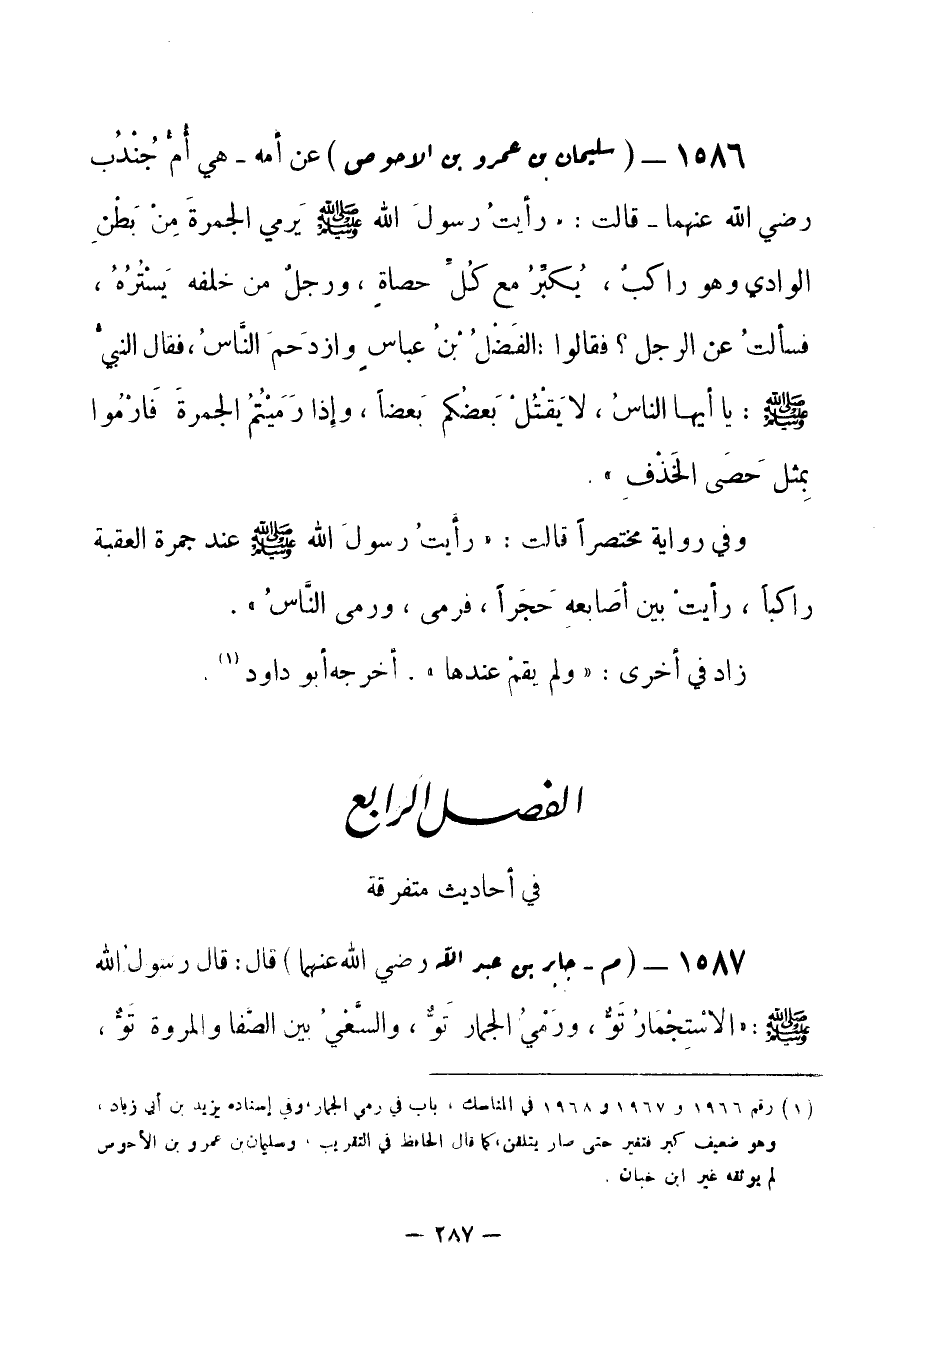 ١٥٨٦ – ( سليمان بن عمرو بن الاحوص ) عن أمه - هي أُمُّ جُنْدُبٍ
رضي الله عنهما - قالت : « رأيتُ رسولَ الله ﷺ يَرمي الجمرةَ مِنْ بَطْنِ
الوادي وهو راكبٌ ، يُكبِّرُ مع كُلِّ حصاةٍ ، ورجلٌ من خلفه يَسْتُرُهُ ،
فسألتُ عن الرجل ؟ فقالوا : الفَضْلُ بْنُ عباسٍ وازدَحمَ النَّاسُ ، فقال النبيُّ
ﷺ : يا أيها الناسُ ، لا يَقتُلْ بَعضُكم بَعضاً ، وإذا رَمَيْتُمُ الجمرةَ فَارْمُوا
بِمثل حَصَى الخَذْفِ » .
وفي رواية مختصراً قالت : « رأيتُ رسولَ الله ﷺ عند جمرة العقبة
راكباً ، رأيتُ بين أَصَابعهِ حَجَراً ، فرمى ، ورمى النَّاسُ » .
زاد في أخرى : « ولم يقمْ عندها » . أخرجه أبو داود (١) .
الفصل الرابع
في أحاديث متفرقة
١٥٨٧ – ( م - جابر بن عبد الله رضي الله عنهما ) قال : قال رسولُ الله
ﷺ : « الاسْتِجْمَارُ تَوٌّ ، ورَمْيُ الجمار تَوٌّ ، والسَّعْيُ بين الصَّفا والمروة تَوٌّ ،
(١) رقم ١٩٦٦ و ١٩٦٧ و ١٩٦٨ في المناسك ، باب في رمي الجمار ، وفي إسناده يزيد بن أبي زياد ،
وهو ضعيف كبر فتغير حتى صار يتلقن ، كما قال الحافظ في التقريب ، وسليمان بن عمرو بن الأحوص
لم يوثقه غير ابن حبان .
– ٢٨٧ –